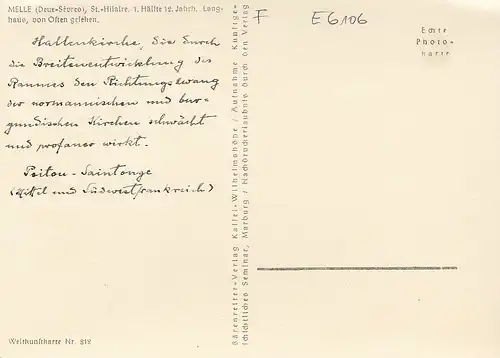 MELLE (Deux-Sèvres), St.-Hilaire. 1. Hälfte 12. Jahrh. Lang-
haus, von Osten gesehen.
Hallenkirche, die durch
die Breitenentwicklung des
Raumes den Richtungszwang
der normannischen und bur-
gundischen Kirchen schwächt
und profaner wirkt.
Poitou - Saintonge
(Mittel und Südwestfrankreich)
Weltkunstkarte Nr. 812
Bärenreiter-Verlag Kassel-Wilhelmshöhe / Aufnahme Kunstge-
schichtliches Seminar, Marburg / Nachdruckerlaubnis durch den Verlag
F
E 6106
Echte
Photo-
karte